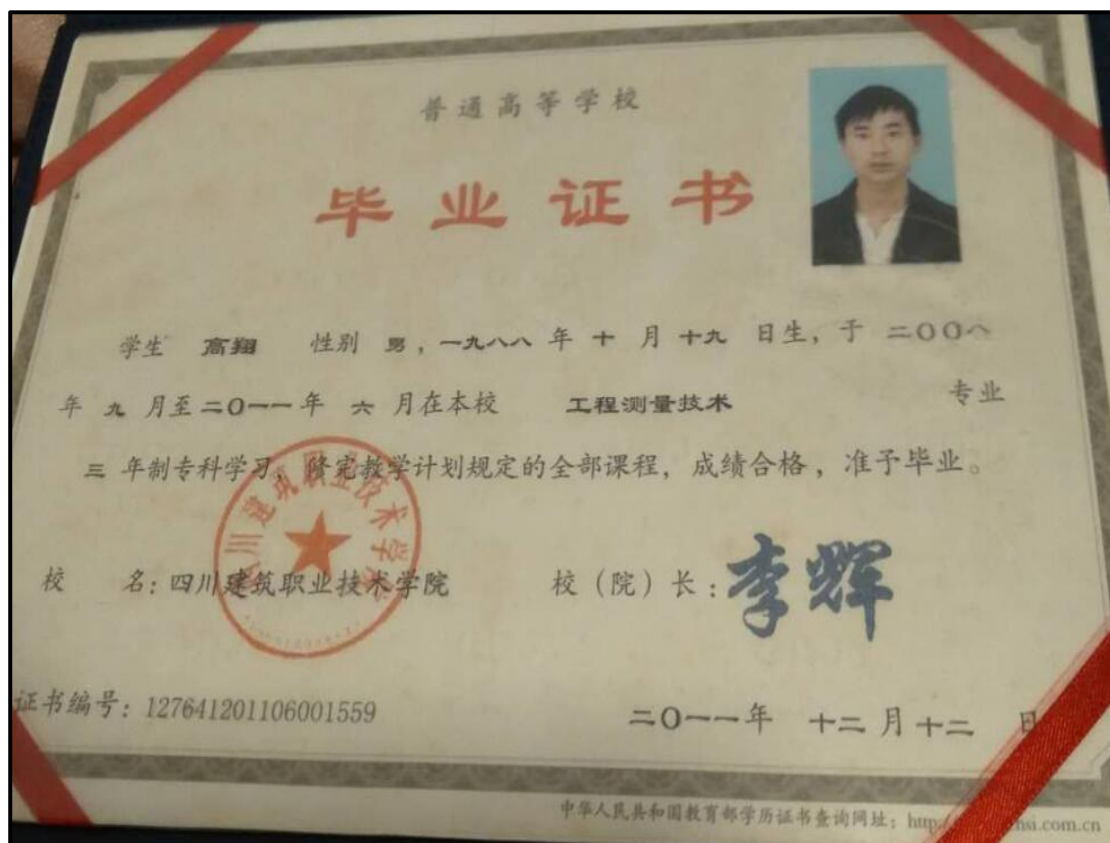 普通高等学校
毕业证书
学生 高翔 性别 男，一九八八 年 十 月 十九 日生，于 二〇〇八
年 九 月至 二〇一一 年 六 月在本校 工程测量技术 专业
三 年制专科学习，修完教学计划规定的全部课程，成绩合格，准予毕业。
四川建筑职业技术学院
校 名：四川建筑职业技术学院 校（院）长：李辉
证书编号：127641201106001559 二〇一一年 十二 月 十二 日
中华人民共和国教育部学历证书查询网址：http
si.com.cn